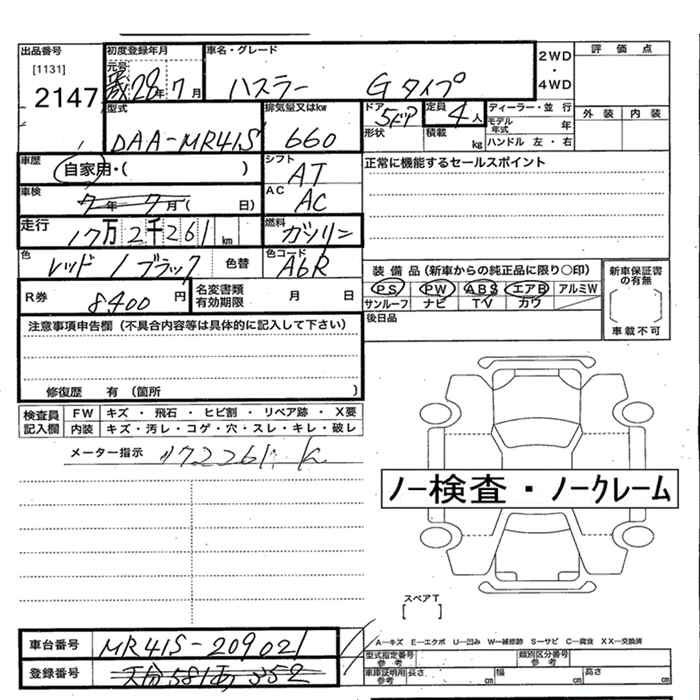 出品番号 初度登録年月 車名・グレード 2WD・4WD 評価点
[1131] 元号 28年7月 ハスラー Gタイプ
2147
型式 排気量又はkw ドア 定員 ディーラー・並行 外装 内装
DAA-MR41S 660 5ドア 4人 モデル年式 年
形状 積載 kg ハンドル 左・右
車歴 自家用・( ) シフト AT 正常に機能するセールスポイント
車検 7年 7月( 日) AC AC
走行 17万2千261km 燃料 ガソリン
色 レッド/ブラック 色替 色コード A6R
装備品(新車からの純正品に限り〇印) 新車保証書の有無
R券 8400円 名変書類有効期限 月 日 PS PW ABS エアB アルミW
サンルーフ ナビ TV カワ 車載不可
注意事項申告欄(不具合内容等は具体的に記入して下さい) 後日品
修復歴 有(箇所 )
検査員記入欄 FW キズ・飛石・ヒビ割・リペア跡・X要
内装 キズ・汚レ・コゲ・穴・スレ・キレ・破レ
メーター指示 172261k
ノー検査・ノークレーム
スペアT
[ ]
A—キズ E—エクボ U—凹み W—補修跡 S—サビ C—腐食 XX—交換済
車台番号 MR41S-209021 型式指定番号 参考 類別区分番号 参考
登録番号 581 352 車庫証明用 参考 長さ cm 幅 cm 高さ cm